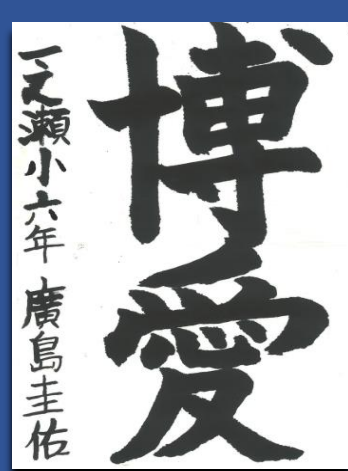 博愛
一之瀬小六年 廣島圭佑